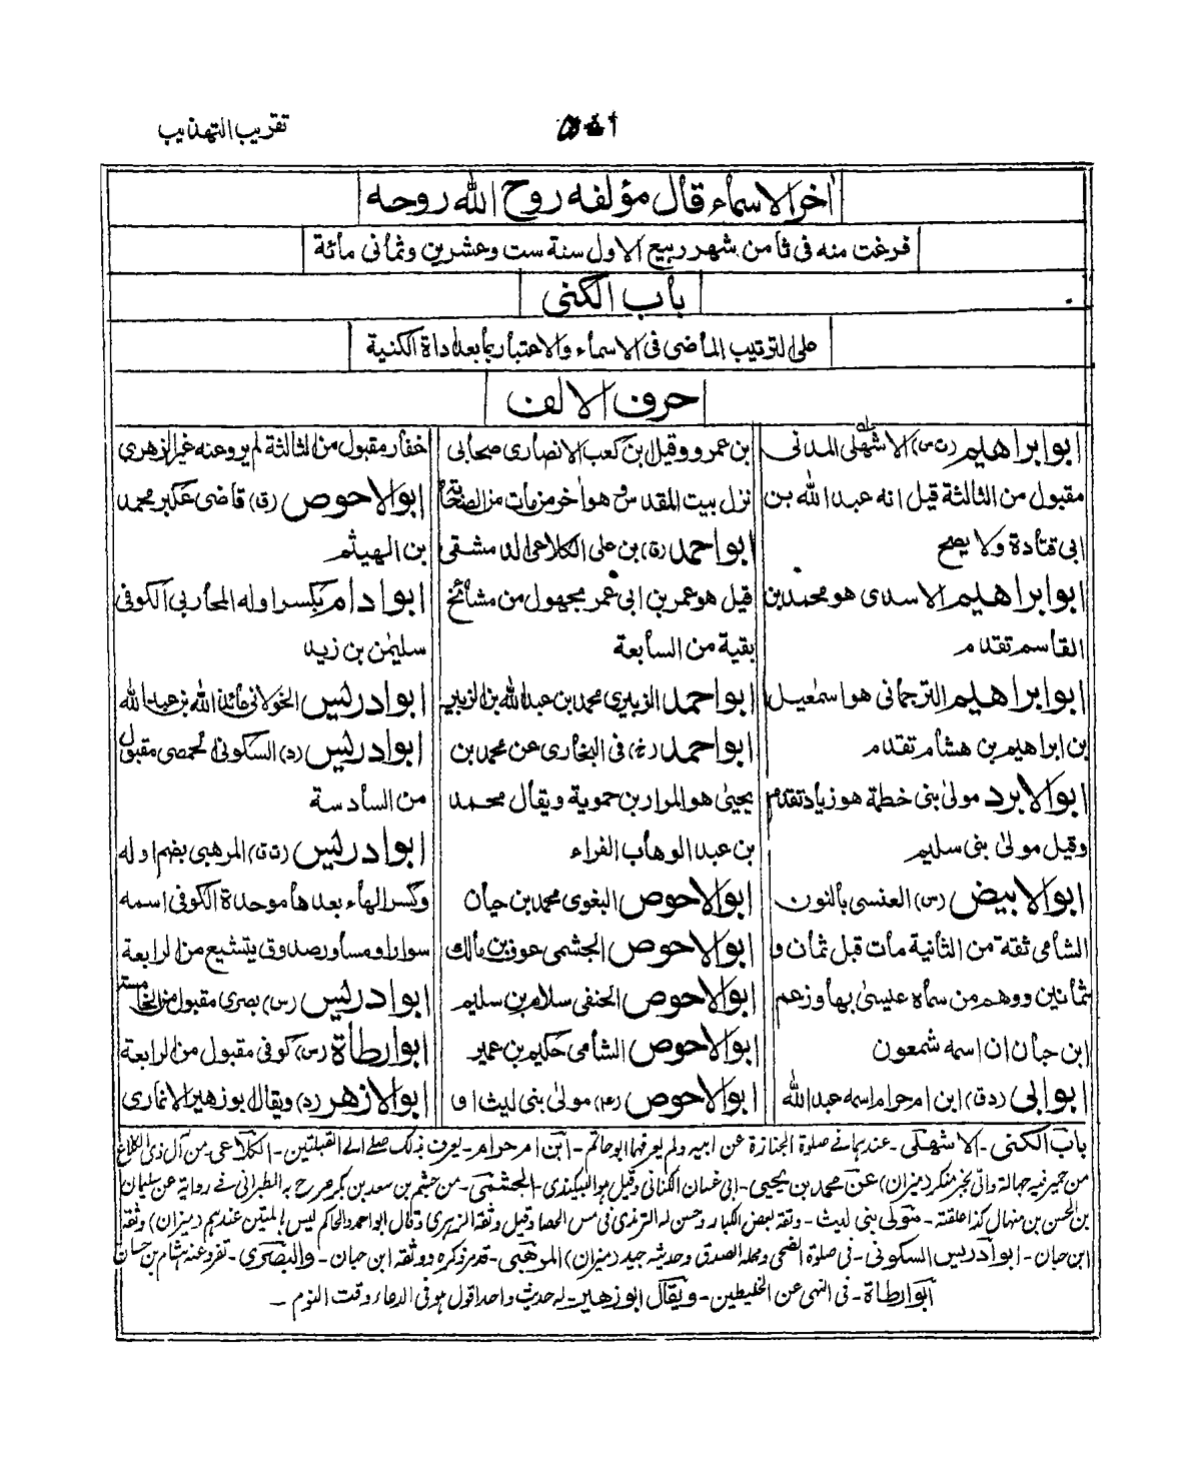 تقريب التهذيب
آخر الاسماء قال مؤلفه روح الله روحه
فرغت منه فى ثامن شهر ربيع الاول سنة ست وعشرين وثمانى مائة
باب الكنى
على الترتيب الماضى فى الاسماء والاعتبار بما بعد اداة الكنية
حرف الالف
ابو ابراهيم (ت س) الاشهلى المدنى
مقبول من الثالثة قيل انه عبد الله بن
ابى قتادة ولا يصح
ابو ابراهيم الاسدى هو محمد بن
القاسم تقدم
ابو ابراهيم الترجمانى هو اسمٰعيل
بن ابراهيم بن هشام تقدم
ابو الابرد مولى بنى خطمة هو زياد تقدم
وقيل مولىٰ بنى سليم
ابو الابيض (س) العنسى بالنون
الشامى ثقة من الثانية مات قبل ثمان و
ثمانين ووهم من سماه عيسىٰ بها وزعم
ابن حبان ان اسمه شمعون
ابو ابى (د ق) ابن ام حرام اسمه عبد الله
بن عمرو وقيل بن كعب الانصارى صحابى
نزل بيت المقدس وهو آخر من مات من الصحابة
ابو احمد (ق) بن على الكلاعى الدمشقى
قيل هو عمر بن ابى عمر مجهول من مشائخ
بقية من السابعة
ابو احمد الزبيرى محمد بن عبد الله بن الزبير
ابو احمد (خ) فى البخارى عن محمد بن
يحيىٰ هو المرار بن حموية ويقال محمد
بن عبد الوهاب الفراء
ابو الاحوص البغوى محمد بن حيان
ابو الاحوص الجشمى عوف بن مالك
ابو الاحوص الحنفى سلام بن سليم
ابو الاحوص الشامى حكيم بن عمير
ابو الاحوص (عم) مولىٰ بنى ليث او
غفار مقبول من الثالثة لم يرو عنه غير الزهرى
ابو الاحوص (ق) قاضى عكبر محمد
بن الهيثم
ابو ادام بكسر اوله المحاربى الكوفى
سليمٰن بن زيد
ابو ادريس الخولانى عائذ الله بن عبد الله
ابو ادريس (د) السكونى الحمصى مقبول
من السادسة
ابو ادريس (ت ق) المرهبى بضم اوله
وكسر الهاء بعدها موحدة الكوفى اسمه
سوار او مساور صدوق يتشيع من الرابعة
ابو ادريس (س) بصرى مقبول من الخامسة
ابو ارطاة (س) كوفى مقبول من الرابعة
ابو الازهر (د) ويقال ابو زهير الانمارى
باب الكنى - الاشهلى - عندهما فى صلوة الجنازة عن ابيه ولم يعرفهما ابو حاتم - ابن ام حرام - يعرف بذلك صلى الى القبلتين - الكلاعى - من آل ذى الكلاع
من حمير فيه جهالة واتى بخبر منكر (ميزان) عن محمد بن يحيى - ابى غسان الكنانى وقيل هو البيكندى - الجشمى - من جشم بن سعد بن بكر صرح به الطبرانى فى رواية عن سليمان
بن الحسن بن منهال كذا علقته - مولى بنى ليث - وثقه بعض الكبار وحسن له الترمذى فى مس الحصا وقيل وثقه الزهرى وقال ابو احمد والحاكم ليس بالمتين عندهم (ميزان) وثقه
ابن حبان - ابو ادريس السكونى - فى صلوة الضحى ومحله الصدق وحديثه جيد (ميزان) المرهبى - قدم ذكره ووثقه ابن حبان - والبصرى - تفرد عنه هشام بن حسان
ابو ارطاة - فى النهى عن الخليطين - ويقال ابو زهير - له حديث واحد اقول هو فى الدعاء وقت النوم -